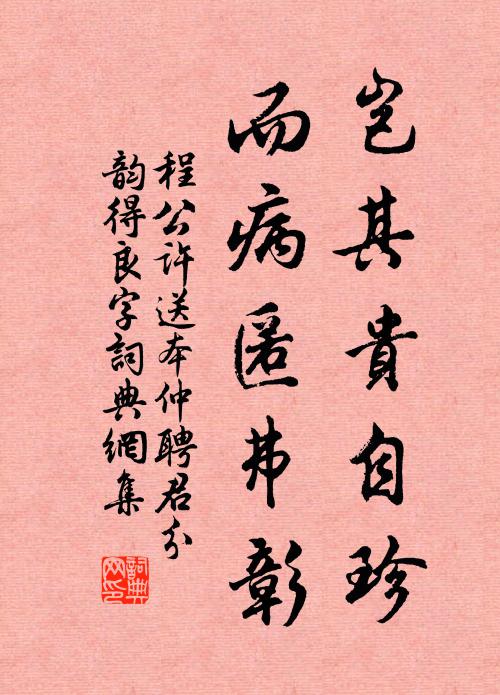 豈其貴自珍
而病匿弗彰
程公許送本仲聘君分
韵得良字詞典網集
詞典
网印